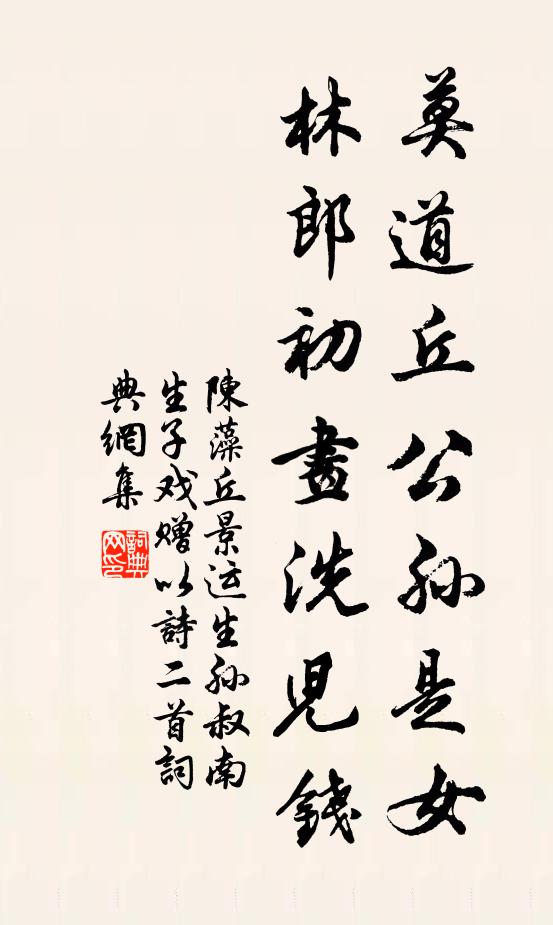 莫道丘公孙是女
林郎初畫洗児錢
陳藻丘景运生孙叔南
生子戏赠以詩二首詞
典網集
詞典
网印